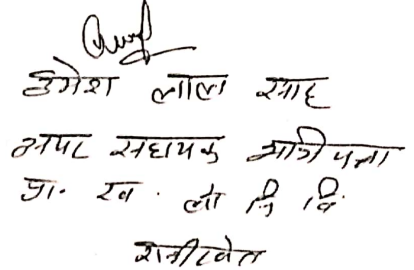 उमेश लाल साह
अपर सहायक अभियन्ता
प्रा. ख. लो नि वि.
रानीखेत